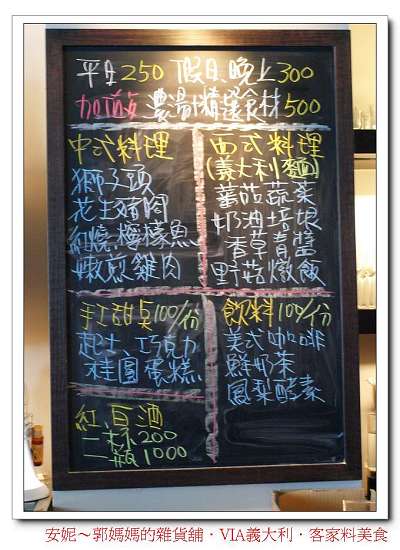 平日250 假日、晚上300
加頂級 濃湯+精選食材500
中式料理
獅子頭
花生豬腳
紅燒檸檬魚
嫩煎雞肉
西式料理
(義大利麵)
蕃茄蔬菜
奶油培根
香草青醬
野菇燉飯
手工甜點100/份
起士 巧克力
桂圓蛋糕
飲料100/份
美式咖啡
鮮奶茶
鳳梨酵素
紅、白酒
一杯200
一瓶1000
安妮～郭媽媽的雜貨舖．VIA義大利．客家料美食